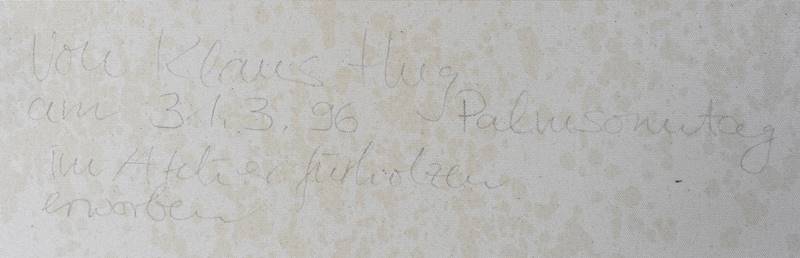 Von Klaus Hug
am 31.3.96 Palmsonntag
im Atelier Fürholzen
erworben